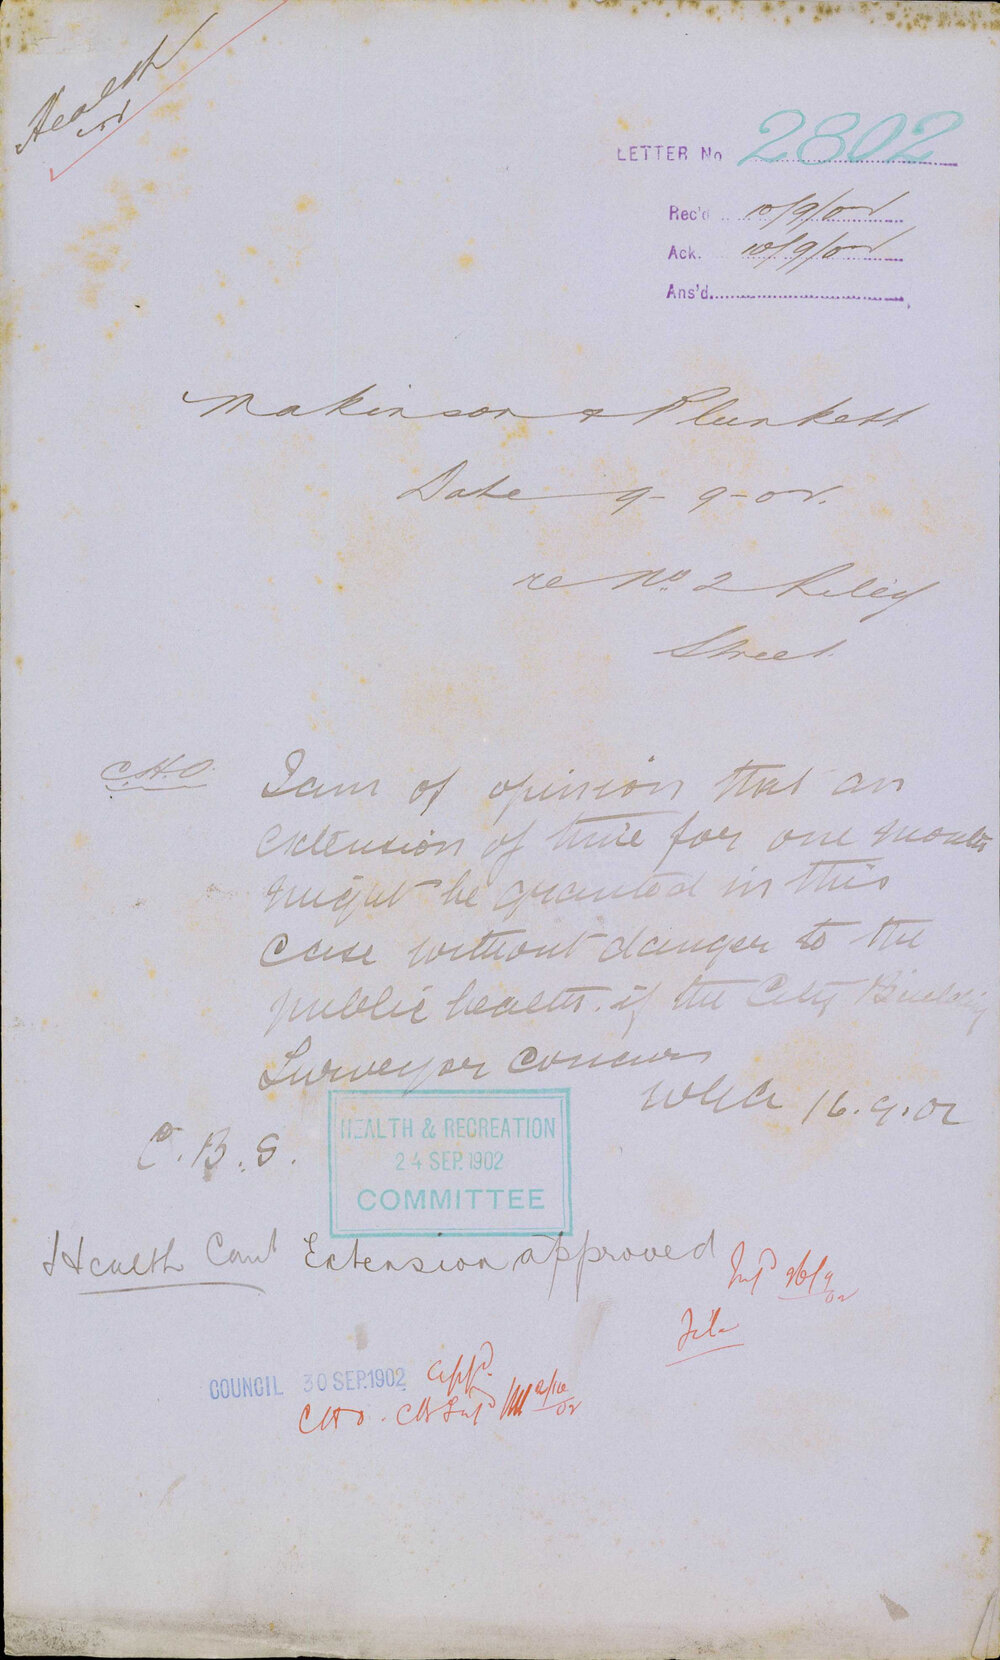 Health
LETTER No 2802
Rec'd 10/9/02
Ack. 10/9/02
Ans'd.
Makinson & Plunkett
Date 9-9-02.
re No. 2 Riley
Street.
C.H.O. I am of opinion that an
extension of time for one month
might be granted in this
case without danger to the
public health. if the City Building
Surveyor concurs
WGA 16.9.02
C.B.S.
HEALTH & RECREATION
24 SEP. 1902
COMMITTEE
Health Comt Extension approved
Inf'd 26/9/02
File
COUNCIL 30 SEP. 1902 appd.
CHO. CBS Inf'd 2/10/02